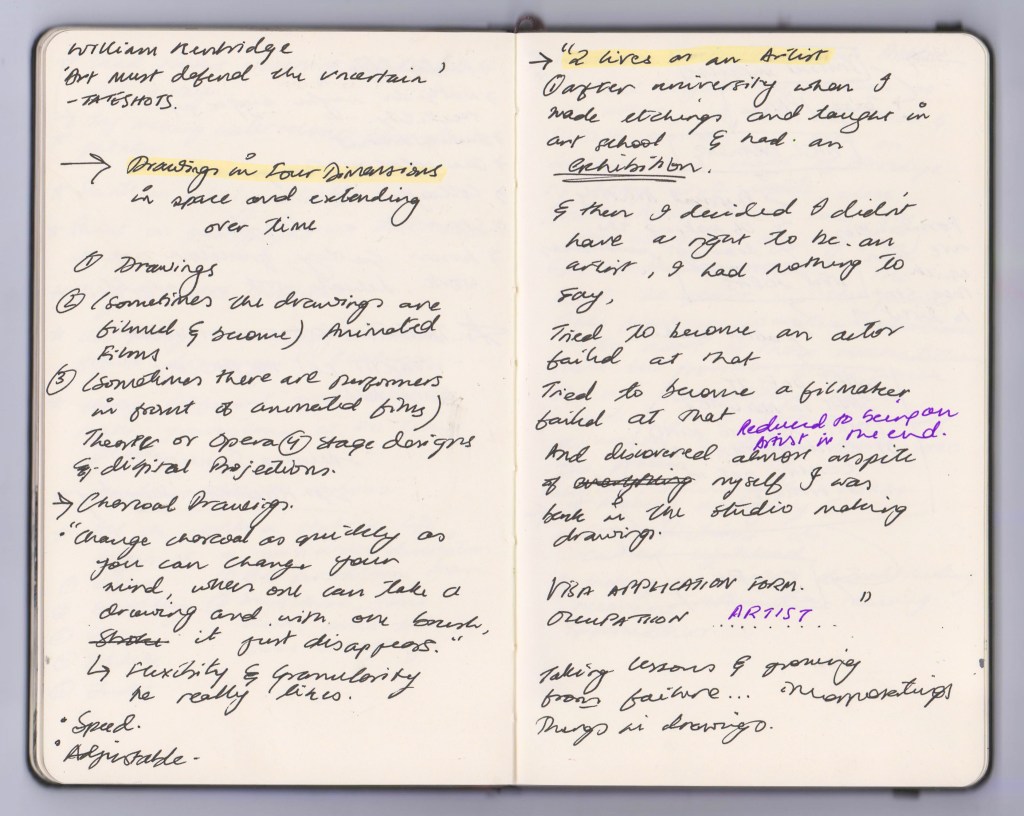 William Kentridge
'Art must defend the uncertain'
- TATESHOTS.
→ Drawings in four Dimensions
in space and extending
over time
① Drawings
② (sometimes the drawings are
filmed & become) Animated
Films
③ (sometimes there are performers
in front of animated films)
Theatre or Opera ④ stage designs
& digital Projections.
→ Charcoal Drawings.
• "Change charcoal as quickly as
you can change your
mind, when one can take a
drawing and with one brush,
stroke it just disappears."
↳ Flexibity & Granularity
he really likes.
• Speed.
• Adjustable.
→ "2 lives as an Artist
① after university when I
made etchings and taught in
art school & had an
exhibition.
& then I decided I didn't
have a right to be an
artist, I had nothing to
say,
Tried to become an actor
failed at that
Tried to become a filmaker,
failed at that
Reduced to being an
Artist in the end.
And discovered almost inspite
of everything myself I was
back in the studio making
drawings.
VISA APPLICATION FORM.
OCCUPATION ARTIST "
Taking lessons & growing
from failure...
Things in drawings.